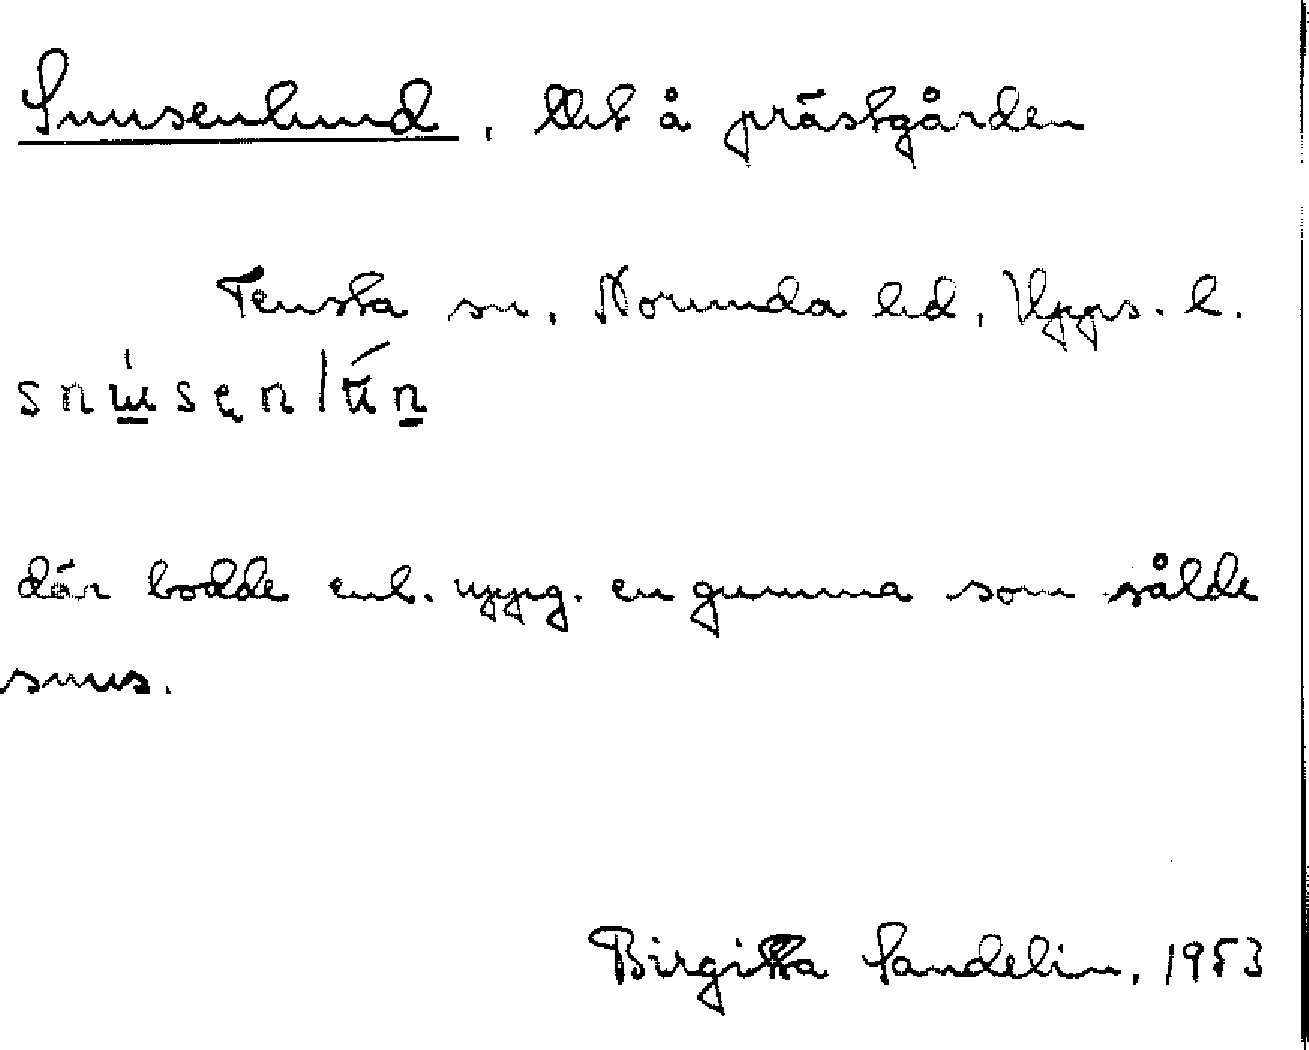 Snusenlund, tkt å prästgården
Tensta sn, Norunda hd, Upps. l.
snu̱senlún̠
där bodde enl. uppg. en gumma som sålde
snus.
Birgitta Sandelin, 1953